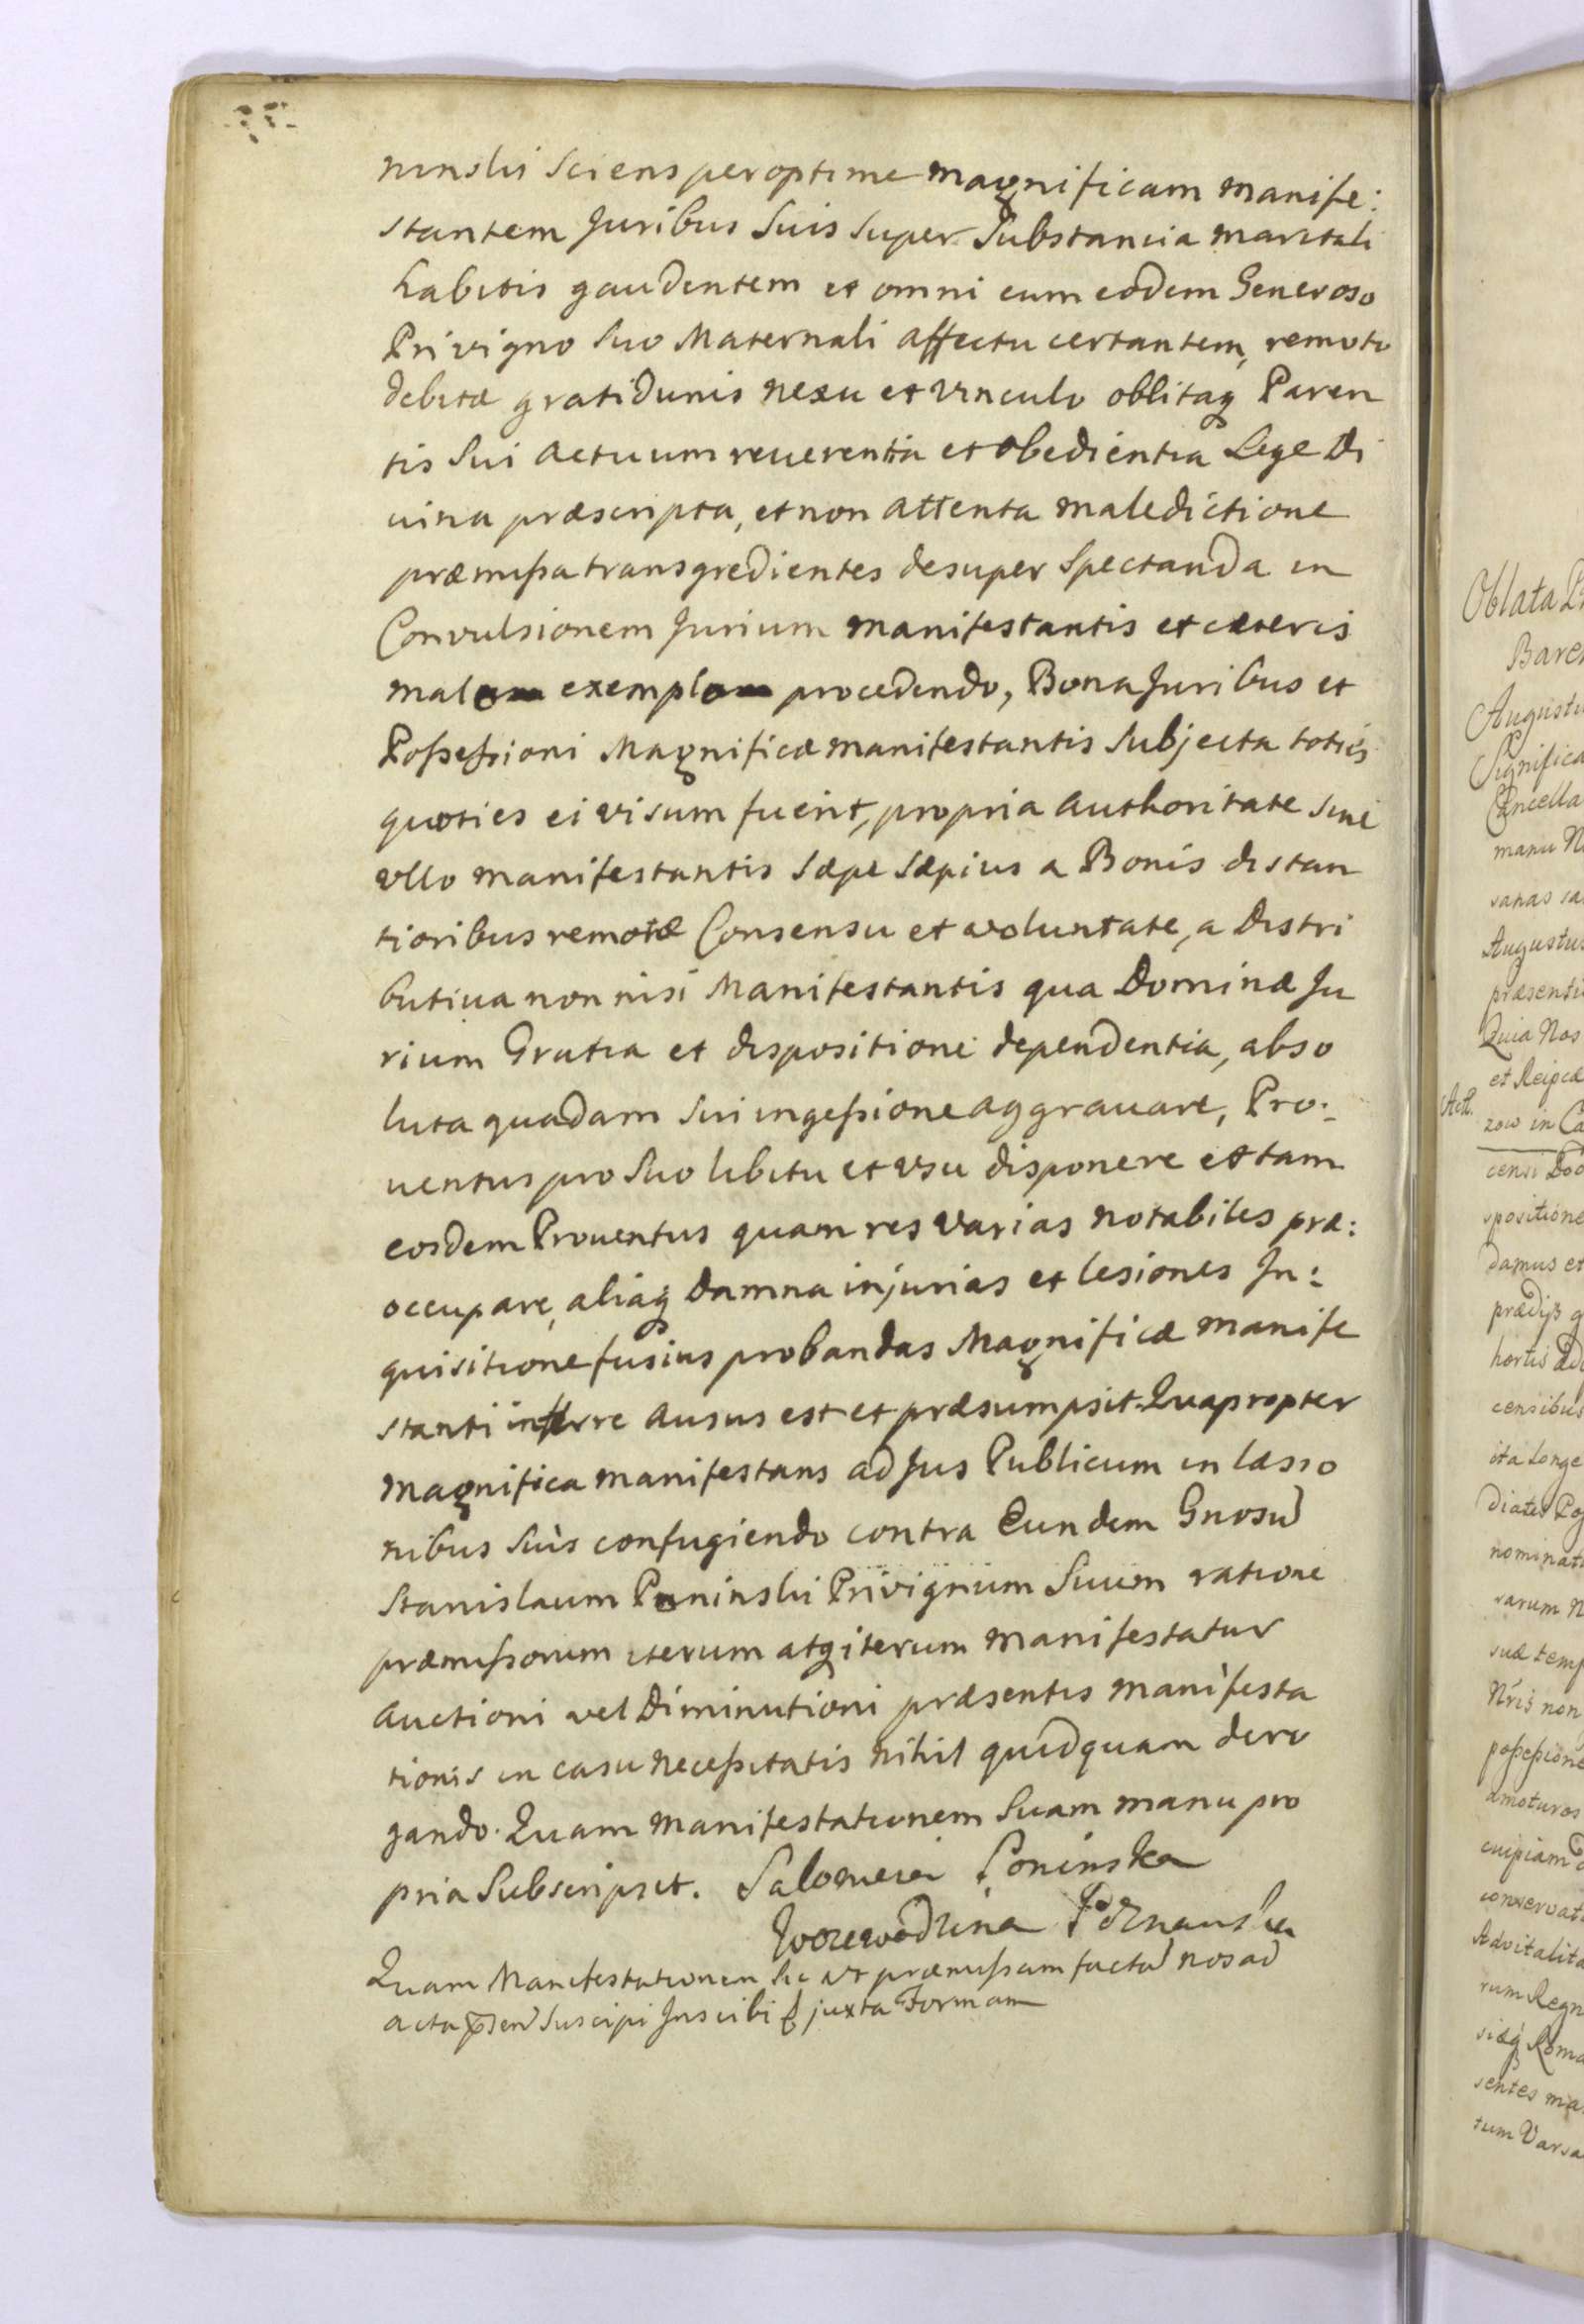 ninski Sciens peroptime magnificam manife:
stantem Juribus Suis Super Substantia maritali
habitis gaudentem et omni cum eodem Generoso
Privigno Suo Maternali affectu certantem, remoto
debitæ gratidunis nexu et vinculo oblitaq Paren
tis Sui actuum reverentia et obedientia Lege Di
vina præscripta, et non attenta maledictione
præmissa transgredientes desuper Spectanda in
Convulsionem Jurium manifestantis et cæteris
malo exemplo procedendo, Bona Juribus et
Possessioni Magnificæ manifestantis Subjecta toties
quoties ei visum fuerit, propria authoritate sine
vllo manifestantis Sæpe Sæpius a Bonis distan
tioribus remotæ Consensu et voluntate, a Distri
butiva non nisi Manifestantis qua Dominæ Ju
rium Gratia et dispositione dependentia, abso
luta quadam Sui ingessione aggravare, Pro:
ventus pro Suo libitu et vsu disponere et tam
eosdem Proventus quam res varias notabiles præ:
occupare, aliaq Damna injurias et lesiones In:
quisitione fusius probandas Magnificæ manife
stanti inferre ausus est et præsumpsit. Quapropter
magnifica manifestans ad Jus Publicum in læsio
nibus Suis confugiendo contra Eundem Gnosu
Stanislaum Poninski Privignum Suum ratione
præmissorum iterum atq iterum manifestatur
auctioni vel Diminutioni præsentis manifesta
tionis in casu necessitatis nihil quidquam dero
gando. Quam manifestationem Suam manu pro
pria Subscripsit. Salomeia Poninska
Woiewodzina Poznanska
Quam Manifestationem sic vt præmissam facta nos ad
acta Suscipi juxta Formam
Oblata
Augustu
Significa
Cancella
manu N
Augustus
præsenti
Quia Nos
et Reipcæ
zow in Ca
spositione
damus et
censibus
ita Longe
nominat
varum N
suæ temp
Nris non
possessione
amoturos
cuipiam
conservat
Advitalita
rum Regn
siæq Roma
sentes ma
tum Varsa